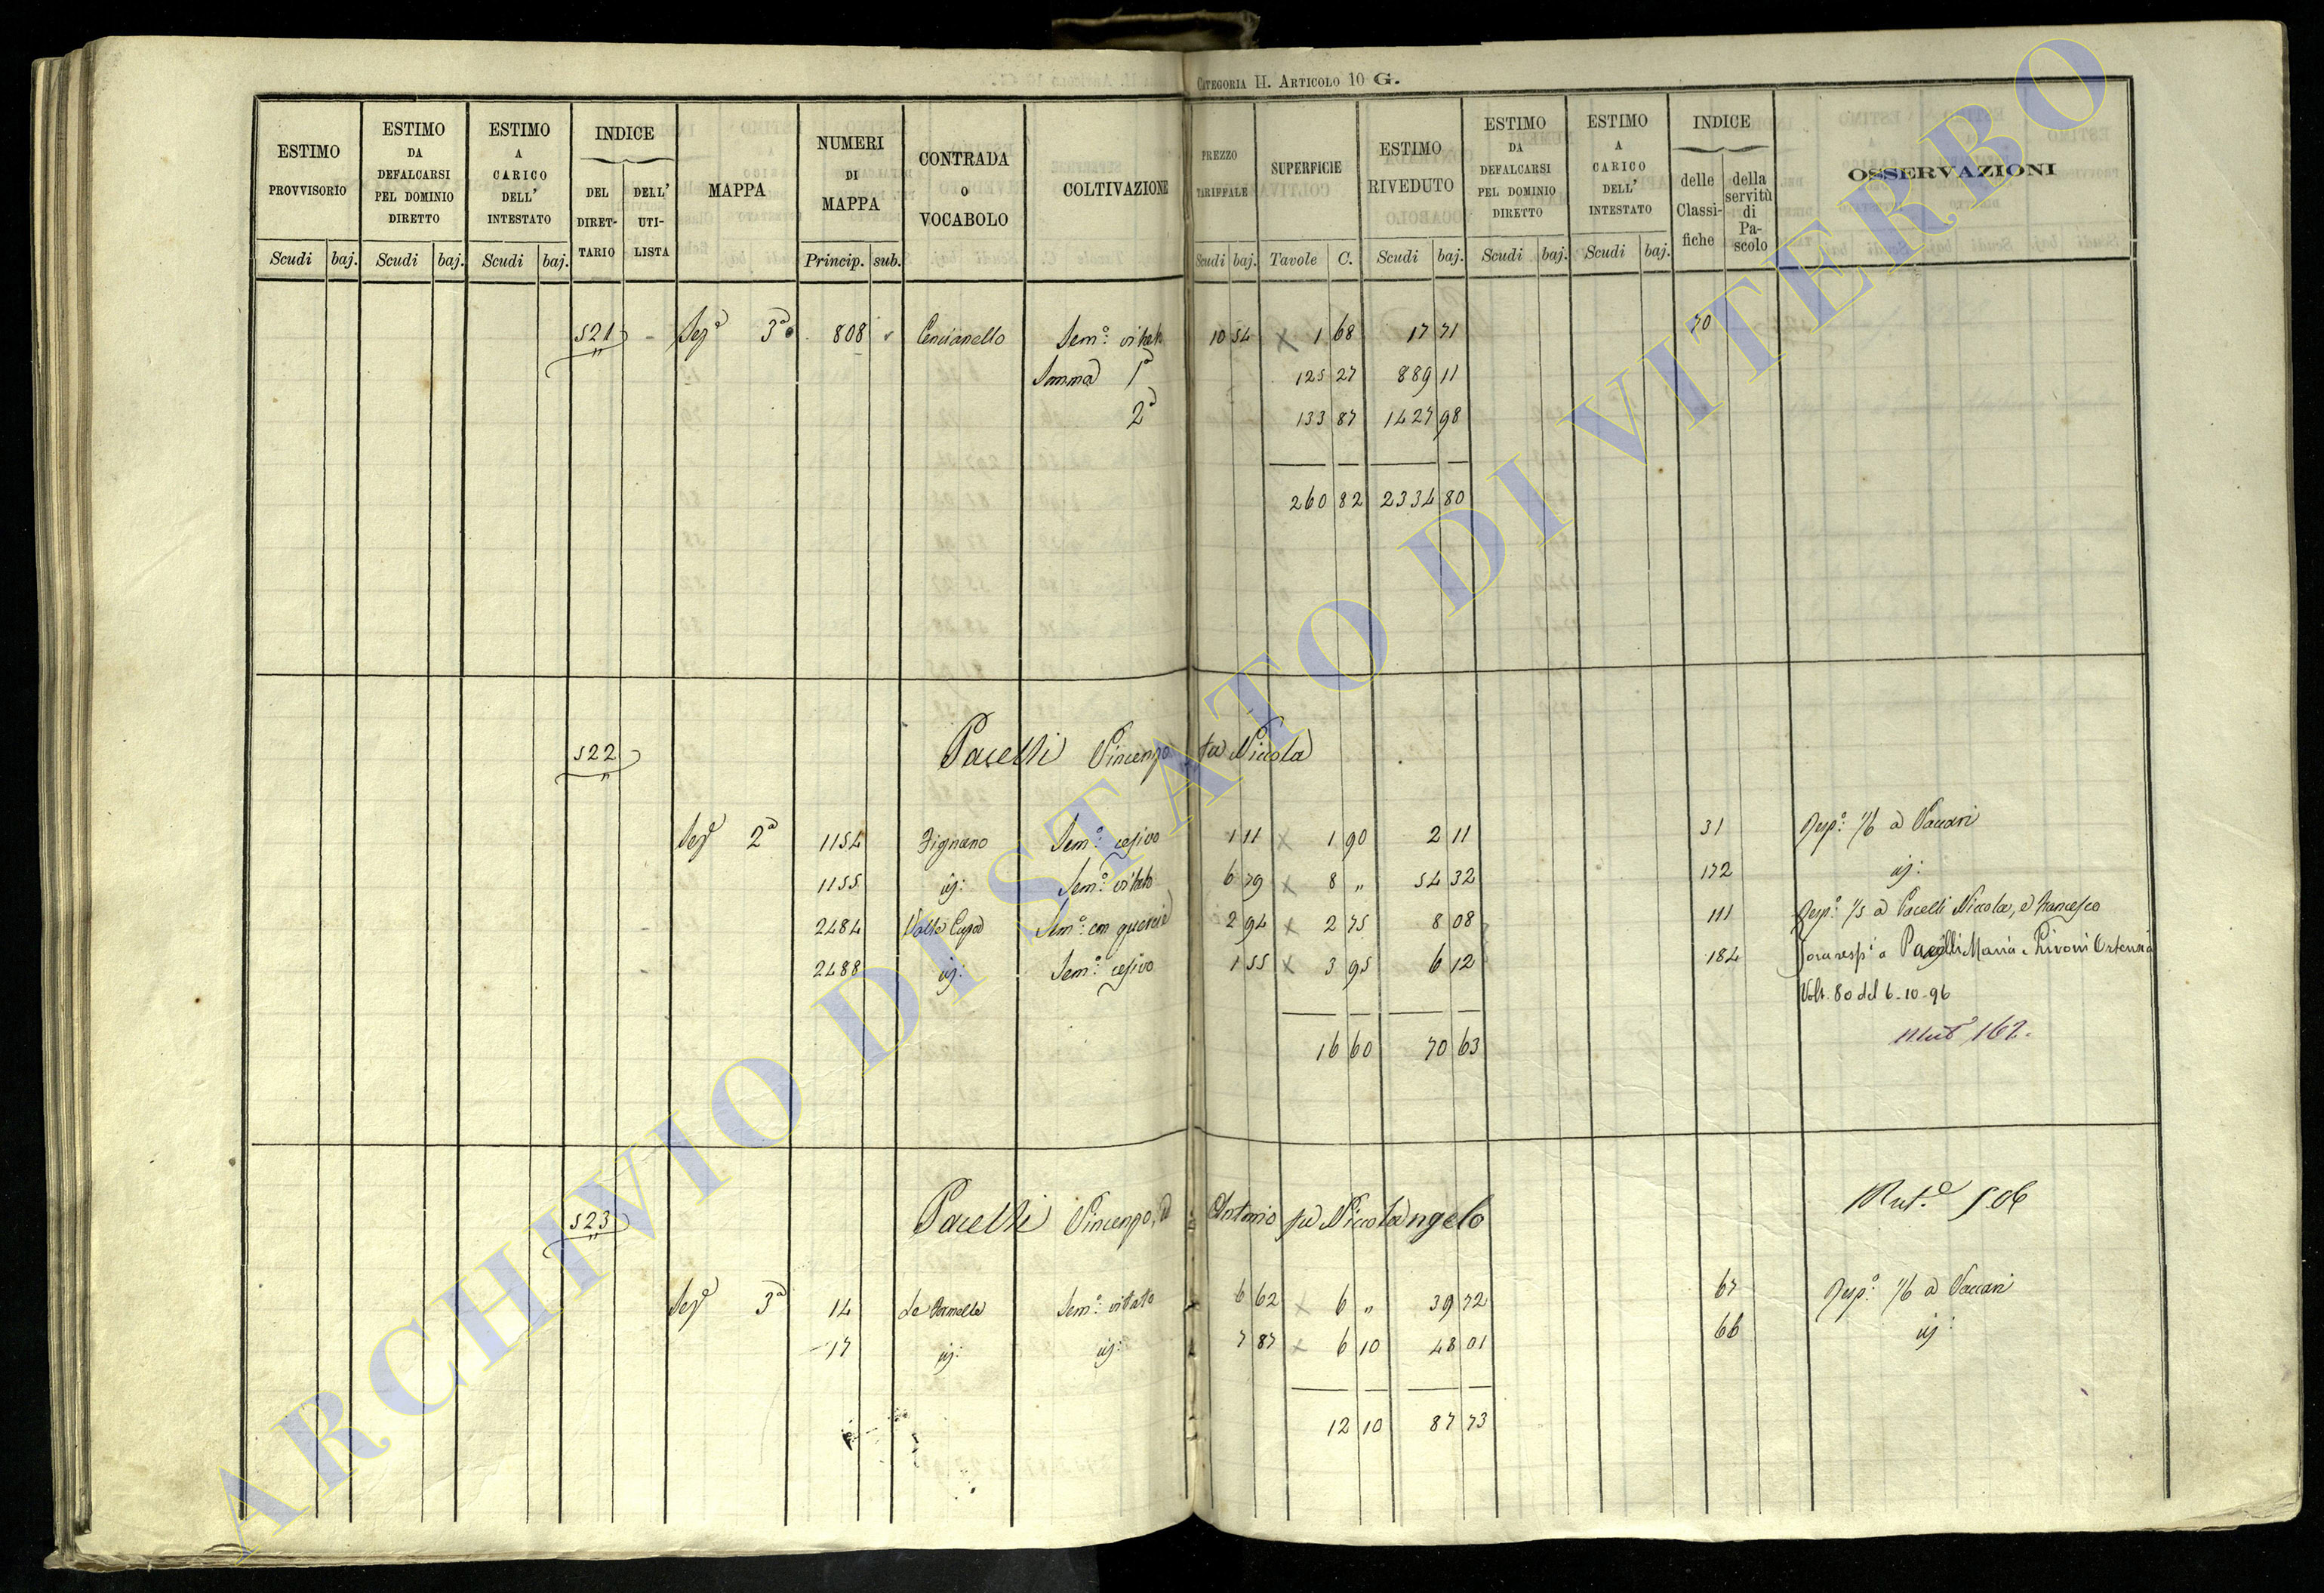 CATEGORIA II. ARTICOLO 10 G.
ESTIMO PROVVISORIO
ESTIMO DA DEFALCARSI PEL DOMINIO DIRETTO
ESTIMO A CARICO DELL' INTESTATO
INDICE
DEL DIRET-TARIO
DELL' UTI-LISTA
MAPPA
NUMERI DI MAPPA
CONTRADA O VOCABOLO
COLTIVAZIONE
PREZZO TARIFFALE
SUPERFICIE
ESTIMO RIVEDUTO
ESTIMO DA DEFALCARSI PEL DOMINIO DIRETTO
ESTIMO A CARICO DELL' INTESTATO
INDICE
delle Classi-fiche
della servitù di Pa-scolo
OSSERVAZIONI
Scudi baj. Scudi baj. Scudi baj. Princip. sub. Scudi baj. Tavole C. Scudi baj. Scudi baj. Scudi baj.
521 Sezª 3ª 808 Cencianello Semº vitato 10 54 1 68 17 71 70
Somma 1ª 125 27 889 11
2ª 133 87 1427 98
260 82 2334 80
522 Pacelli Vincenzo fu Niccola
Sezª 2ª 1154 Fignano Semº cesivo 1 11 1 90 2 11 31 Respº 1/6 a Vaccari
1155 id: Semº vitato 6 79 8 " 54 32 172 id:
2484 Valle Cupa Semº con quercie 2 94 2 75 8 08 111 Respº 1/5 a Pacelli Niccola, e Francesco
2488 id: Semº cesivo 1 55 3 95 6 12 184 a Pacelli Maria e Ortensia
Volt. 80 del 6-10-96
16 60 70 63 Mutª 162.
523 Pacelli Vincenzo, ed Antonio fu Niccolangelo Mutª 506
Sezª 3ª 14 Le Vannelle Semº vitato 6 62 6 " 39 72 67 Respº 1/6 a Vaccari
17 id: id: 7 87 6 10 48 01 66 id:
12 10 87 73
ARCHIVIO DI STATO DI VITERBO